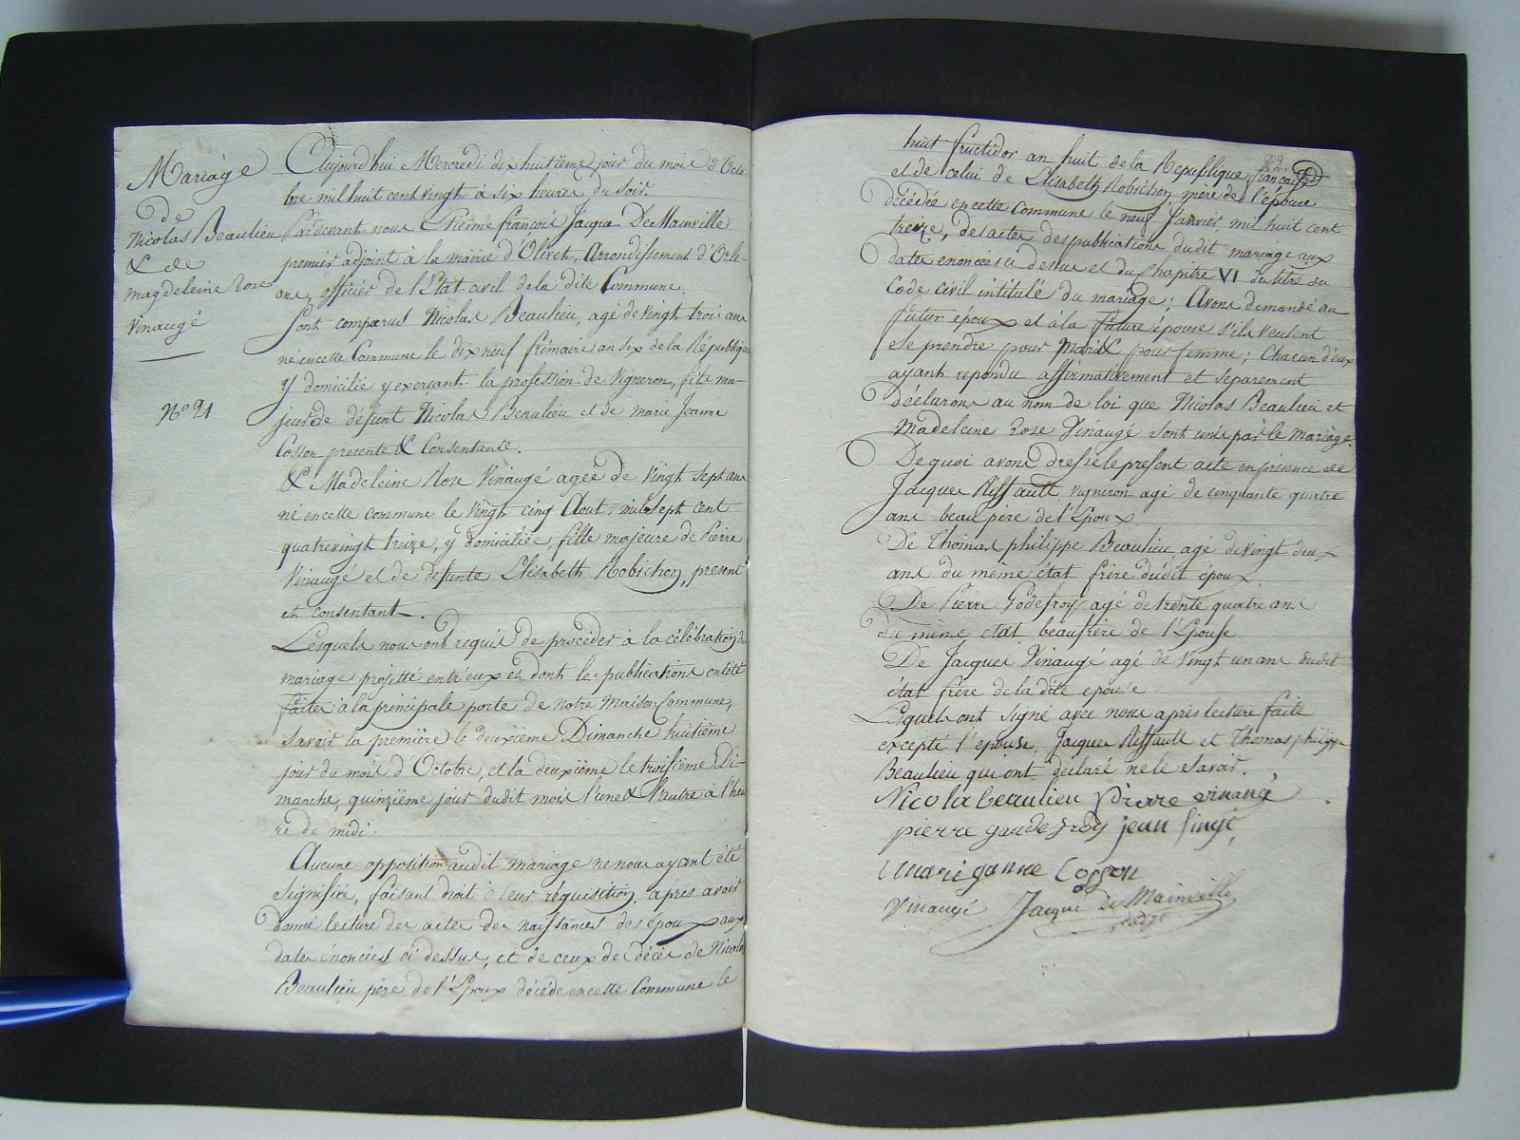 Mariage
de
Nicolas Beaulieu
& de
magdeleine Rose
Vinaugé
N° 21
Aujourd'hui Mercredi dix huitième jour du mois d'Octo
bre mil huit cent vingt à six heures du soir.
Pardevant nous Etienne françois Jacque De Mainville
premier adjoint à la mairie d'Olivet, Arrondissement d'Orlé-
ans, officier de l'Etat civil de la dite Commune.
Sont comparus Nicolas Beaulieu, agé de vingt trois ans
né en cette Commune le dix neuf frimaire an six de la République
y domicilié y exerçant la profession de Vigneron, fils ma-
jeur de défunt Nicolas Beaulieu et de marie Jeanne
Cosson presente & Consentante.
& Madeleine Rose Vinaugé agée de vingt sept ans
né en cette commune le vingt cinq Aout mil sept cent
quatrevingt treize, y domiciliée, fille majeure de Pierre
Vinaugé et de défunte Elisabeth Robichon, present
et consentant.
Lesquels nous ont requis de procéder à la célébration du
mariage projetté entre eux et dont les publications ont été
faites à la principale porte de notre Maison Commune,
savoir la première le deuxième Dimanche huitième
jour du mois d'Octobre, et la deuxième le troisième Di-
manche, quinzième jour dudit mois l'une & l'autre à l'heu
re de midi.
Aucune opposition audit mariage ne nous ayant été
signifiée, faisant droit à leur réquisition, après avoir
donné lecture des actes de naissances des époux aux
dates énoncées ci dessus, et de ceux de décès de Nicolas
Beaulieu père de l'Epoux décédé en cette Commune le
huit fructidor an huit de la République française
et de celui de Elisabeth Robichon mère de l'épouse
décédée en cette Commune le neuf Janvier mil huit cent
treize, des actes des publications dudit mariage aux
dates enoncées ci dessus et du Chapitre VI du titre du
Code civil intitulé du mariage; Avons demandé au
futur époux et à la future épouse s'ils veulent
se prendre pour Mari & pour femme; Chacun d'eux
ayant repondu affirmativement et separement
déclarons au nom de loi que Nicolas Beaulieu et
Madeleine Rose Vinaugé sont unis par le mariage.
De quoi avons dressé le present acte en présence de
Jacques Riffault vigneron agé de cinquante quatre
ans beau père de l'Epoux
De Thomas philippe Beaulieu agé de vingt deux
ans du même état frère dudit époux.
De Pierre Godefroy agé de trente quatre ans
du même etat beaufrère de l'Epouse
De Jacques Vinaugé agé de vingt un ans dudit
état frère de la dite epouse
Lesquels ont signé avec nous après lecture faite
excepté l'epouse, Jacques Riffault et Thomas philippe
Beaulieu qui ont declaré ne le savoir.
Nicola beaulieu Pierre vinaugé
pierre gaudefroy jean
marie ganne Cosson
Vinaugé Jacque De Mainville